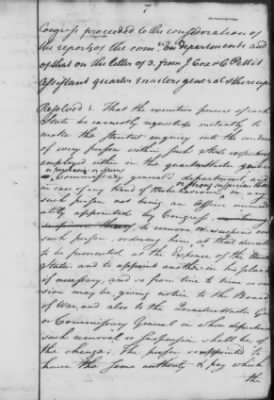 7
Congress proceeded to the consideration of
the reports of the com: on departments and
of that on the letter of 3. from J Cox & C Pettit
assistant quarter masters general & thereup
Resolved: That the executive powers of each
State be earnestly requested instantly to
make the strictest enquiry into the conduct
of every person within such State respectively
employed either in the quartermaster general
or purchasing or issuing
& Commissary general's departments, and
in case of any kind of misbehaviour or strong suspicion thereof
such person not being an officer immedi
ately appointed by Congress
to remove or suspend
such person, ordering him, at their discretion
to be prosecuted at the expence of the United
States, and to appoint another in his place
if necessary, and so from time to time as occa
sion may be, giving notice to the Board
of War, and also to the Quartermaster Gen
or Commissary General in whose department
such removal or suspension shall be, of
the change. The person so appointed to
have the same authority & pay which
the